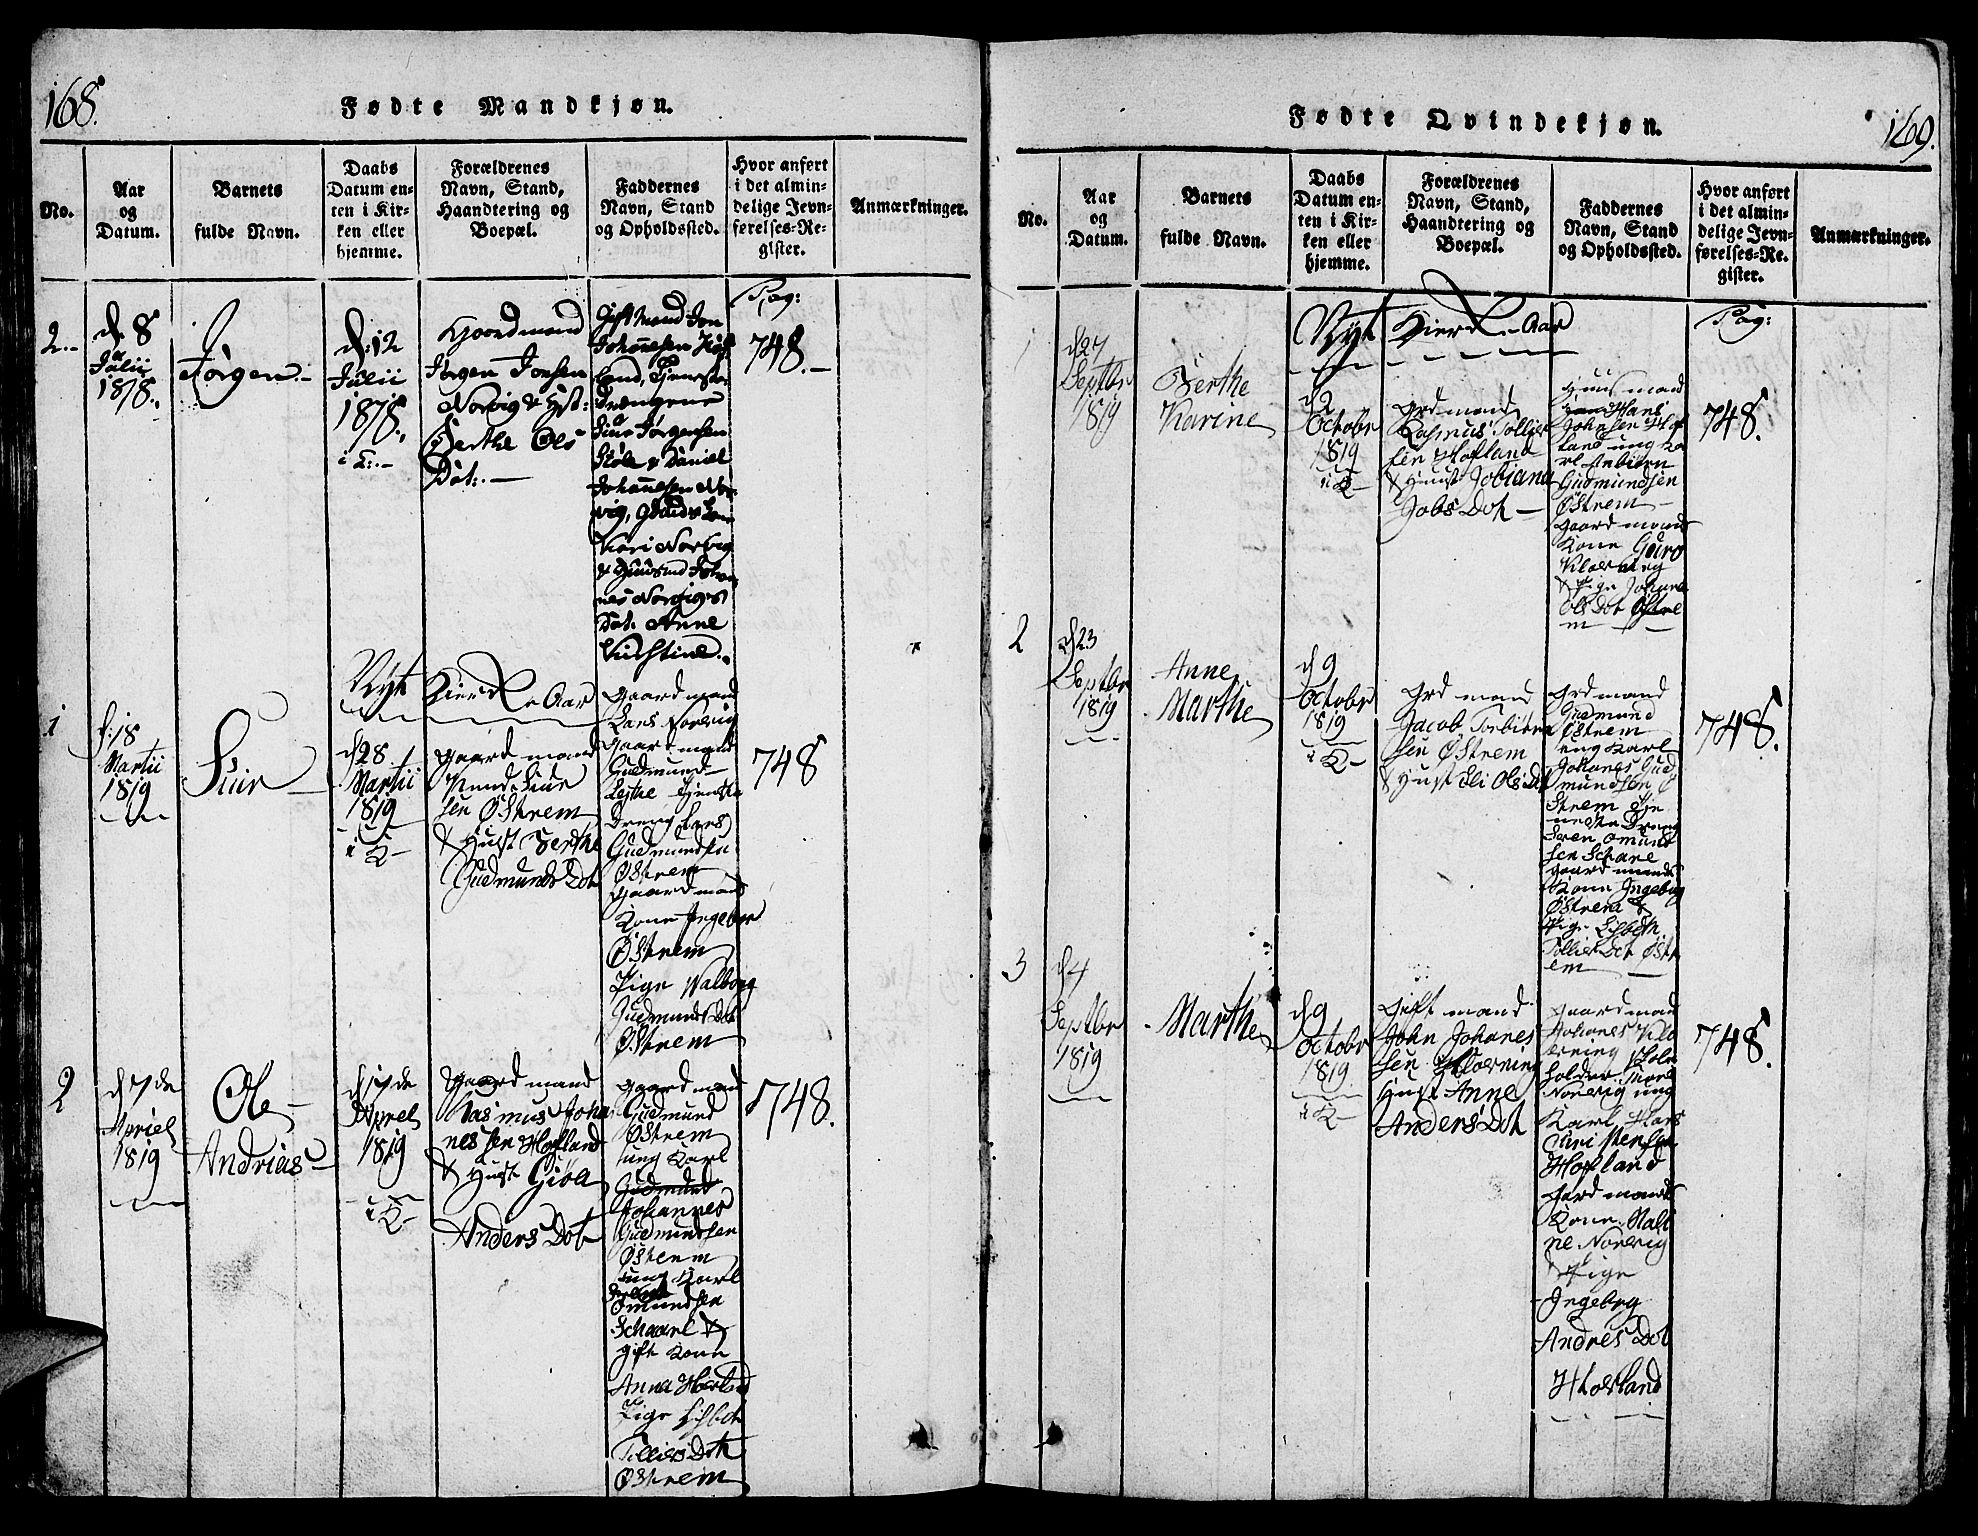 168.
Fødte Mandkjøn.
No.
Aar
og
Datum.
Barnets
fulde Navn.
Daabs
Datum en-
ten i Kir-
ken eller
hjemme.
Forældrenes
Navn, Stand,
Haandtering og
Boepæl.
Faddernes
Navn, Stand
og Opholdssted.
Hvor anført
i det almin-
delige Jevn-
førelses-Re-
gister.
Anmærkninger.
2.
d. 8
Julii
1818.
Jørgen.
d. 12
Julii
1818.
i K.
Jørgen Jonsen
Norvig & Hst:
Berthe Ols
Dat:
Gift Mand Jon
Johannesen
Siur Jørgensen
& Daniel
Johannesen Nor-
vig,
Kari Norvig
nes Norvigs
Dat. Anne
Kirstine.
Pag:
748.
Nyt Kierke Aar
1
d. 18
Martii
1819
Siur
d 28
Martii
1819
i K
Gaardmand
sen Østrem
& Hust Berthe
Gudmunds Dot
Gaardmand
Lars Norvig
Gaardmand
Gudmund
Dreng Lars
Gudmundsen
Østrem
Gaardmands
Kone Ingebor
Østrem
Pige Walborg
Gudmunds Dot
Østrem
748
2
d 7de
Apriel
1819
Ole
Andrias
d 17de
Aprel
1819
i K
Gaardmand
Rasmus Joha
nessen Hofland
& Hust Giøa
Anders Dot
Gaardmand
Gudmund
Østrem
ung Karl
Gudmund
Johannes
Gudmundsen
Østerm
ung Karl
Omundsen
Schaarl &
gift Kone
Anna
Pige Lisbet
Tolliers Dot
Østrem
748.
169.
Fødte Qvindekjøn.
No.
Aar
og
Datum.
Barnets
fulde Navn.
Daabs
Datum en-
ten i Kir-
ken eller
hjemme.
Forældrenes
Navn, Stand,
Haandtering og
Boepæl.
Faddernes
Navn, Stand
og Opholdssted.
Hvor anført
i det almin-
delige Jevn-
førelses-Re-
gister.
Anmærkninger.
Nyt Kierke Aar
Pag:
1
d 27
Septbr
1819
Berthe
Karine
d 2
Octobr
1819
i K
Grdmand
Rasmus Tollier
sen Hofland
& Hust Jobiana
Jobs Dot
Huusmand
Hans
Johnsen Hof
land ung Ka
rl Anbiørn
Gudmundsen
Østrem
Gaardmands
Kone Guro
& Pige Johane
Ols Dot Østre
m
748.
2
d 23
Septbr
1819
Anne
Marthe
d 9
Octobr
1819
i K
Grdmand
Jacob Torbiørn
sen Østrem
& Hust Eli Ols Dot
Grdmand
Gudmund
Østrem
ung Karl
Johanes Gud
mundsen Ø
strem Tie
neste Dreng
Sven Omund
sen Schare
Gaardmands
Kone Ingebor
Østrem &
Pige Lisbeth
Tollier Dot Østr
em
748.
3
d 4
Septbr
1819
Marthe
d 9
Octobr
1819
i K
Gift mand
John Johanes
sen
Hust Anne
Anders Dot
Gaardmand
Johanes
Norvig ung
Karl Hans
Hofland
Gardmands
Kone Malt
ne Norvig
& Pige
Ingebrg
Andres Dot
748.